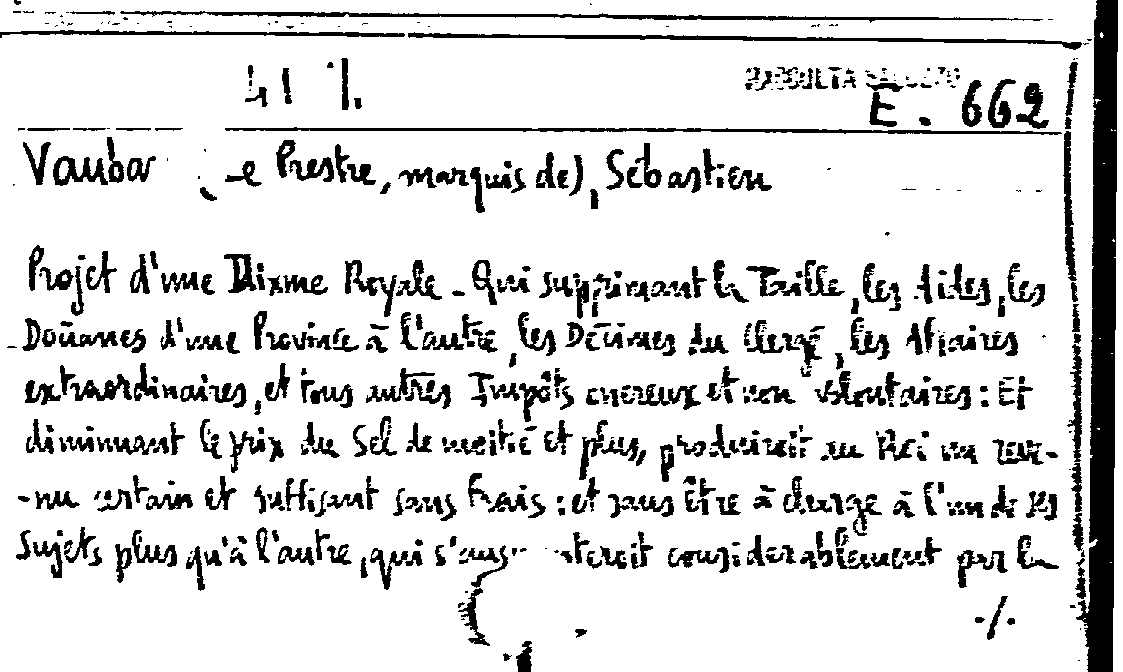 41 /.
RACCOLTA
E. 662
Vauban (Le Prestre, marquis de), Sébastien
Projet d'une Dixme Royale - Qui supprimant la Taille, les Aides, les
Doüanes d'une Province à l'autre, les Décimes du Clergé, les Affaires
extraordinaires, et tous autres Impôts onereux et non volontaires : Et
diminuant le prix du Sel de moitié et plus, produiroit au Roi un reve-
-nu certain et suffisant sans frais : et sans être à charge à l'un de ses
Sujets plus qu'à l'autre, qui s'augmenteroit considerablement par la
./.